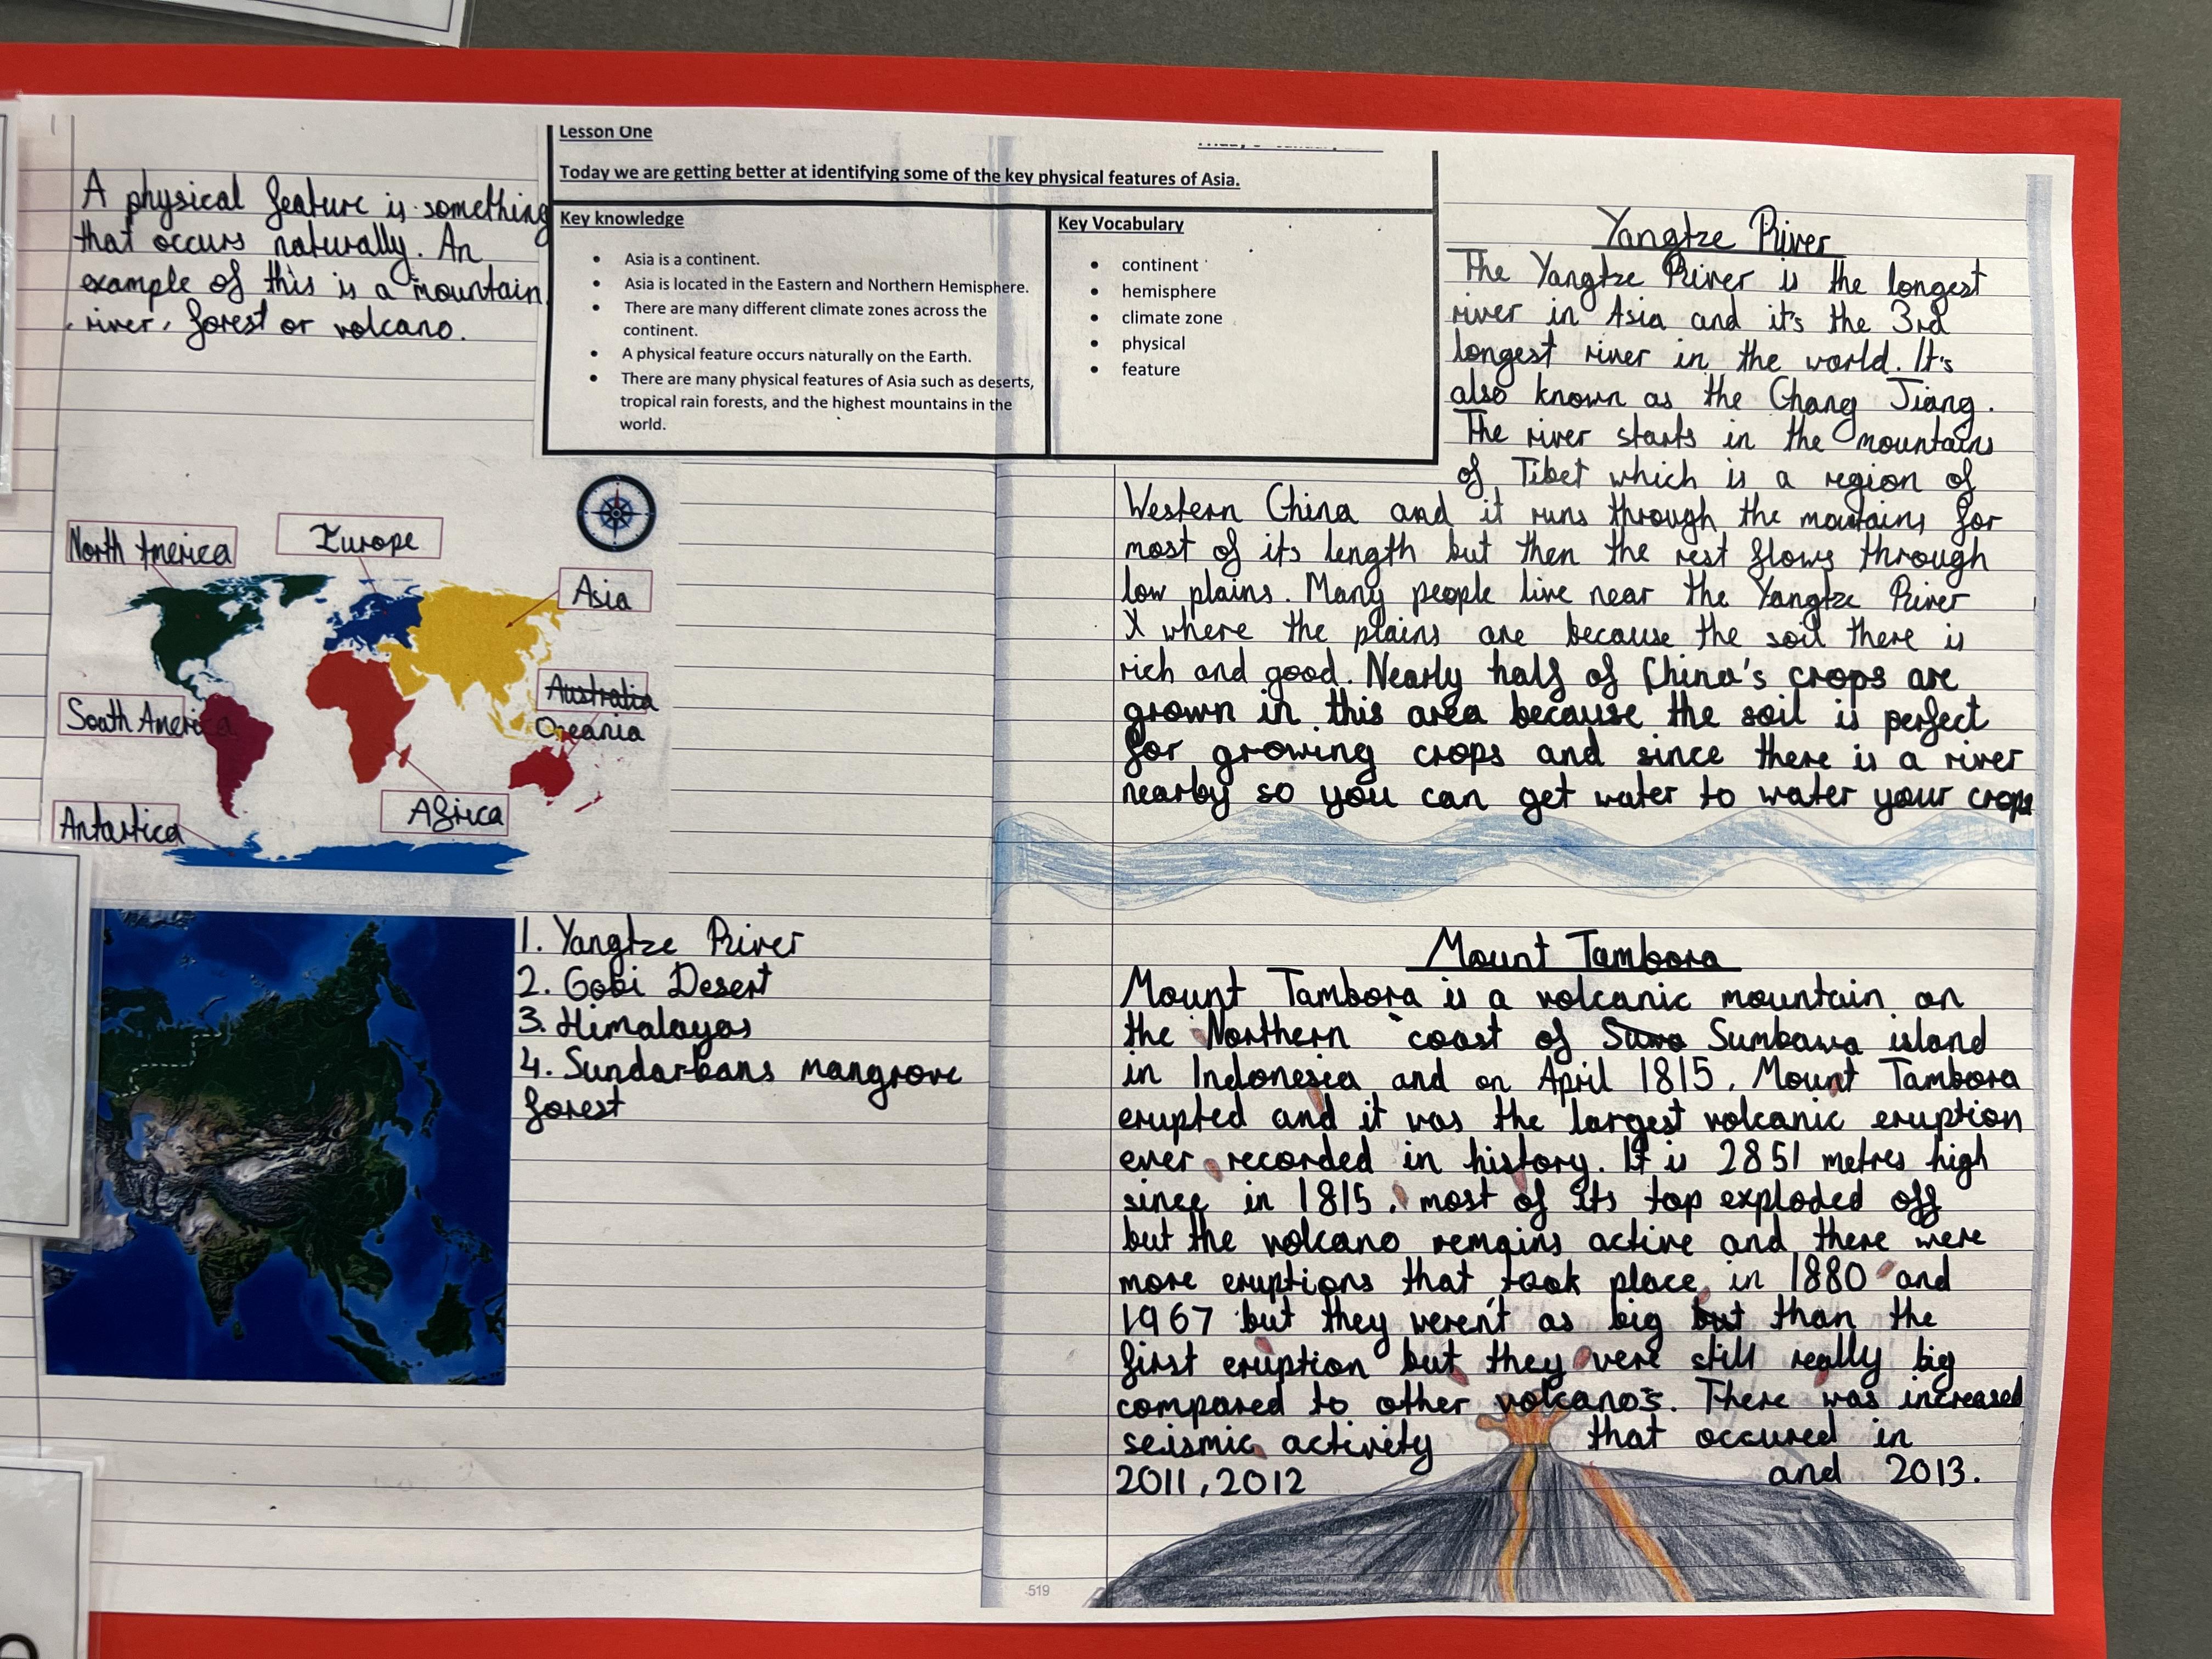 A physical feature is something
that occurs naturally. An
example of this is a mountain
, river, forest or volcano.
Lesson One
Today we are getting better at identifying some of the key physical features of Asia.
Key knowledge
• Asia is a continent.
• Asia is located in the Eastern and Northern Hemisphere.
• There are many different climate zones across the
continent.
• A physical feature occurs naturally on the Earth.
• There are many physical features of Asia such as deserts,
tropical rain forests, and the highest mountains in the
world.
Key Vocabulary
• continent
• hemisphere
• climate zone
• physical
• feature
North America
Europe
Asia
Australia
Oceania
South America
Africa
Antartica
1. Yangtze River
2. Gobi Desert
3. Himalayas
4. Sundarbans mangrove
forest
Yangtze River
The Yangtze River is the longest
river in Asia and it's the 3rd
longest river in the world. It's
also known as the Chang Jiang.
The river starts in the mountains
of Tibet which is a region of
Western China and it runs through the moutains for
most of its length but then the rest flows through
low plains. Many people live near the Yangtze River
X where the plains are because the soil there is
rich and good. Nearly half of China's crops are
grown in this area because the soil is perfect
for growing crops and since there is a river
nearby so you can get water to water your crops
Mount Tambora
Mount Tambora is a volcanic mountain on
the Northern coast of Sumbawa island
in Indonesia and on April 1815, Mount Tambora
erupted and it was the largest volcanic eruption
ever recorded in history. It is 2851 metres high
since in 1815, most of its top exploded off
but the volcano remains active and there were
more eruptions that took place in 1880 and
1967 but they weren't as big but than the
first eruption but they were still really big
compared to other volcano's. There was increased
seismic activity that occured in
2011, 2012 and 2013.
519